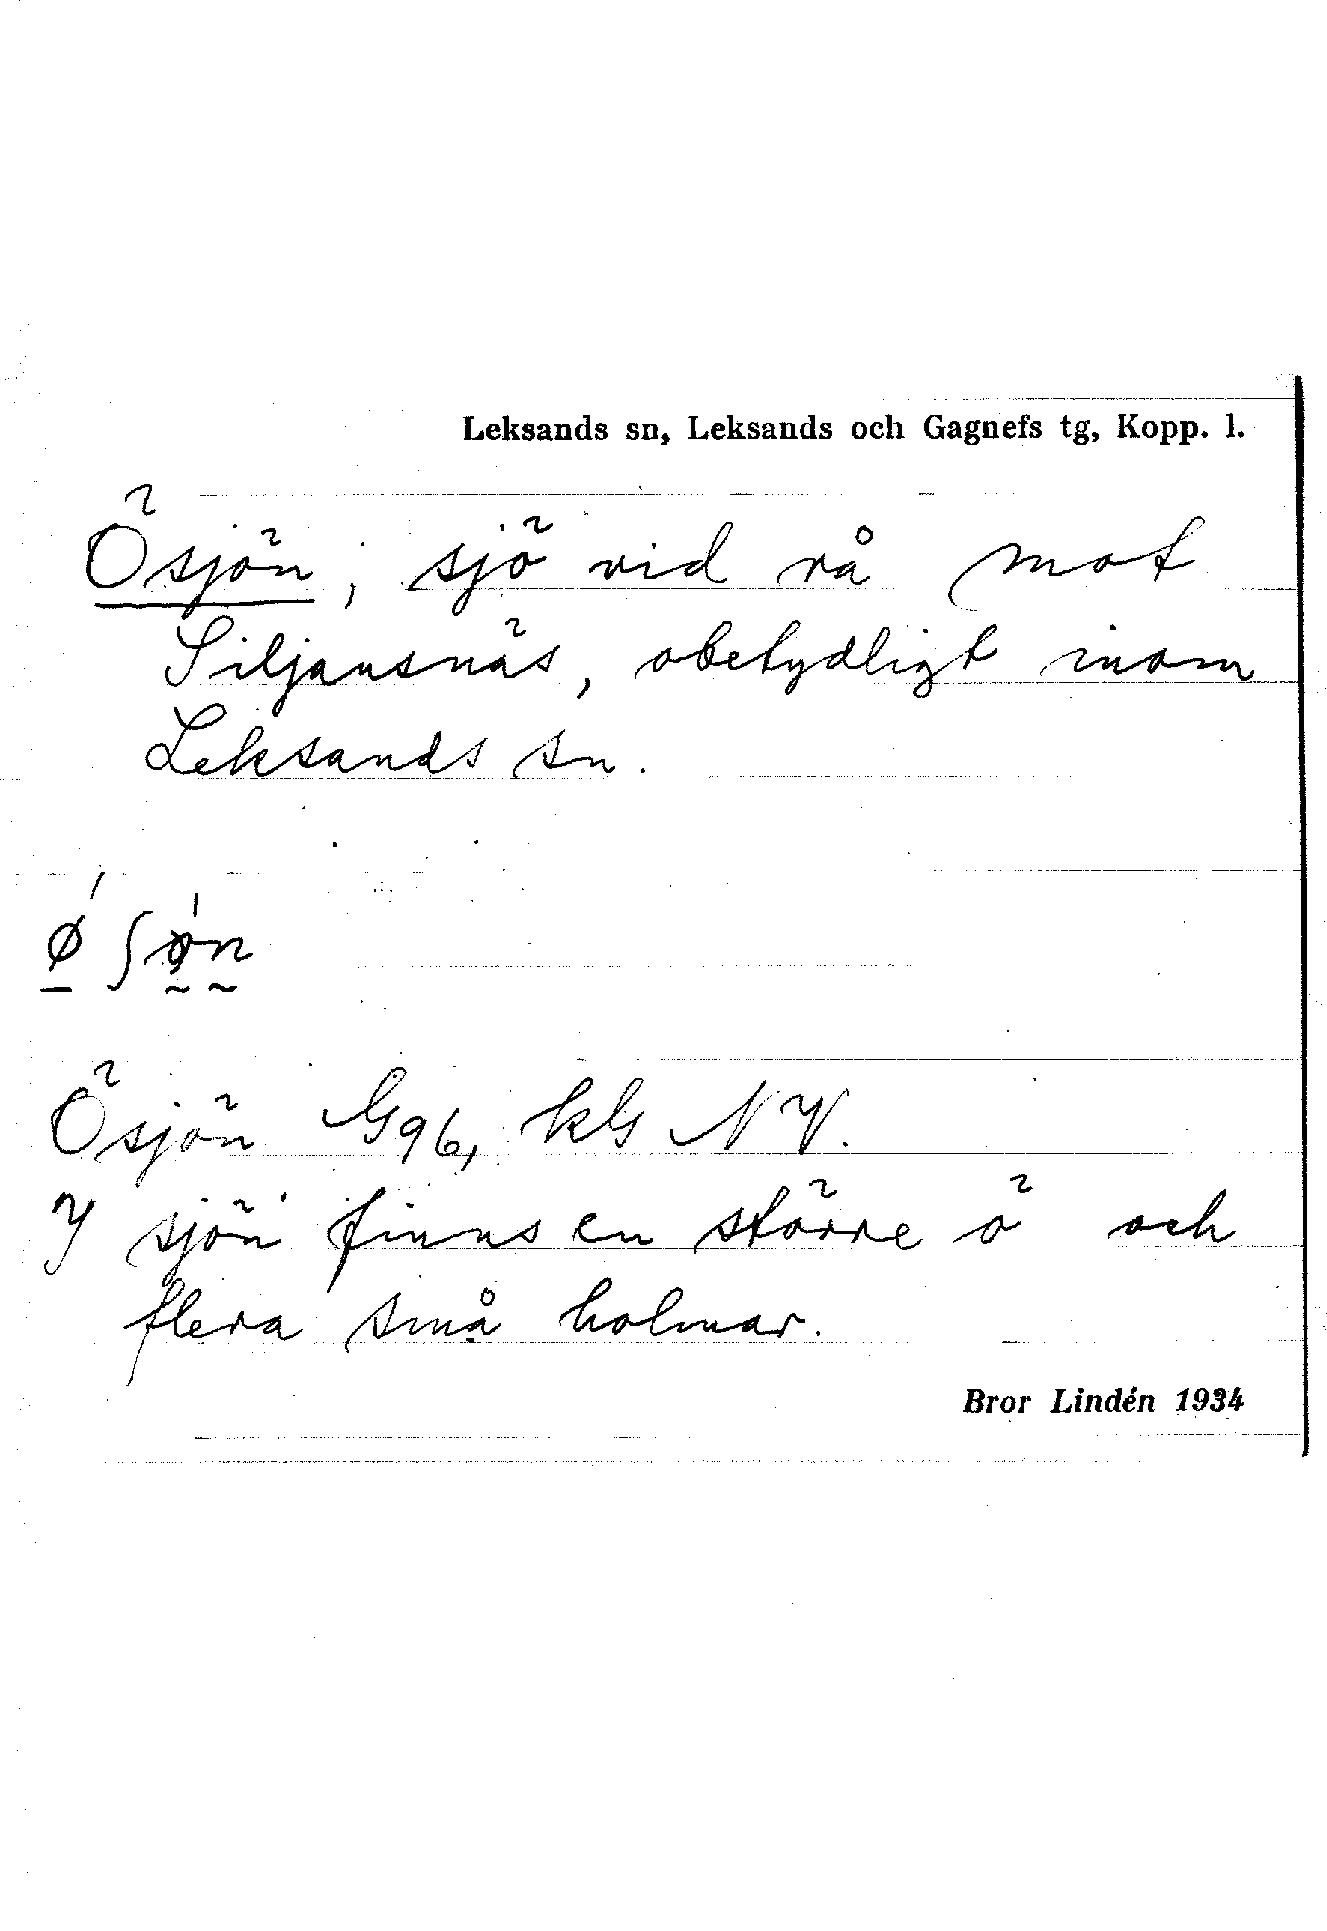 Leksands sn, Leksands och Gagnefs tg, Kopp. l.
Ösjön, sjö vid rå mot
Siljansnäs, obetydligt inom
Leksands sn.
Ösjön G96, kbl NV.
I sjön finns en större ö och
flera små holmar.
Bror Lindén 1934